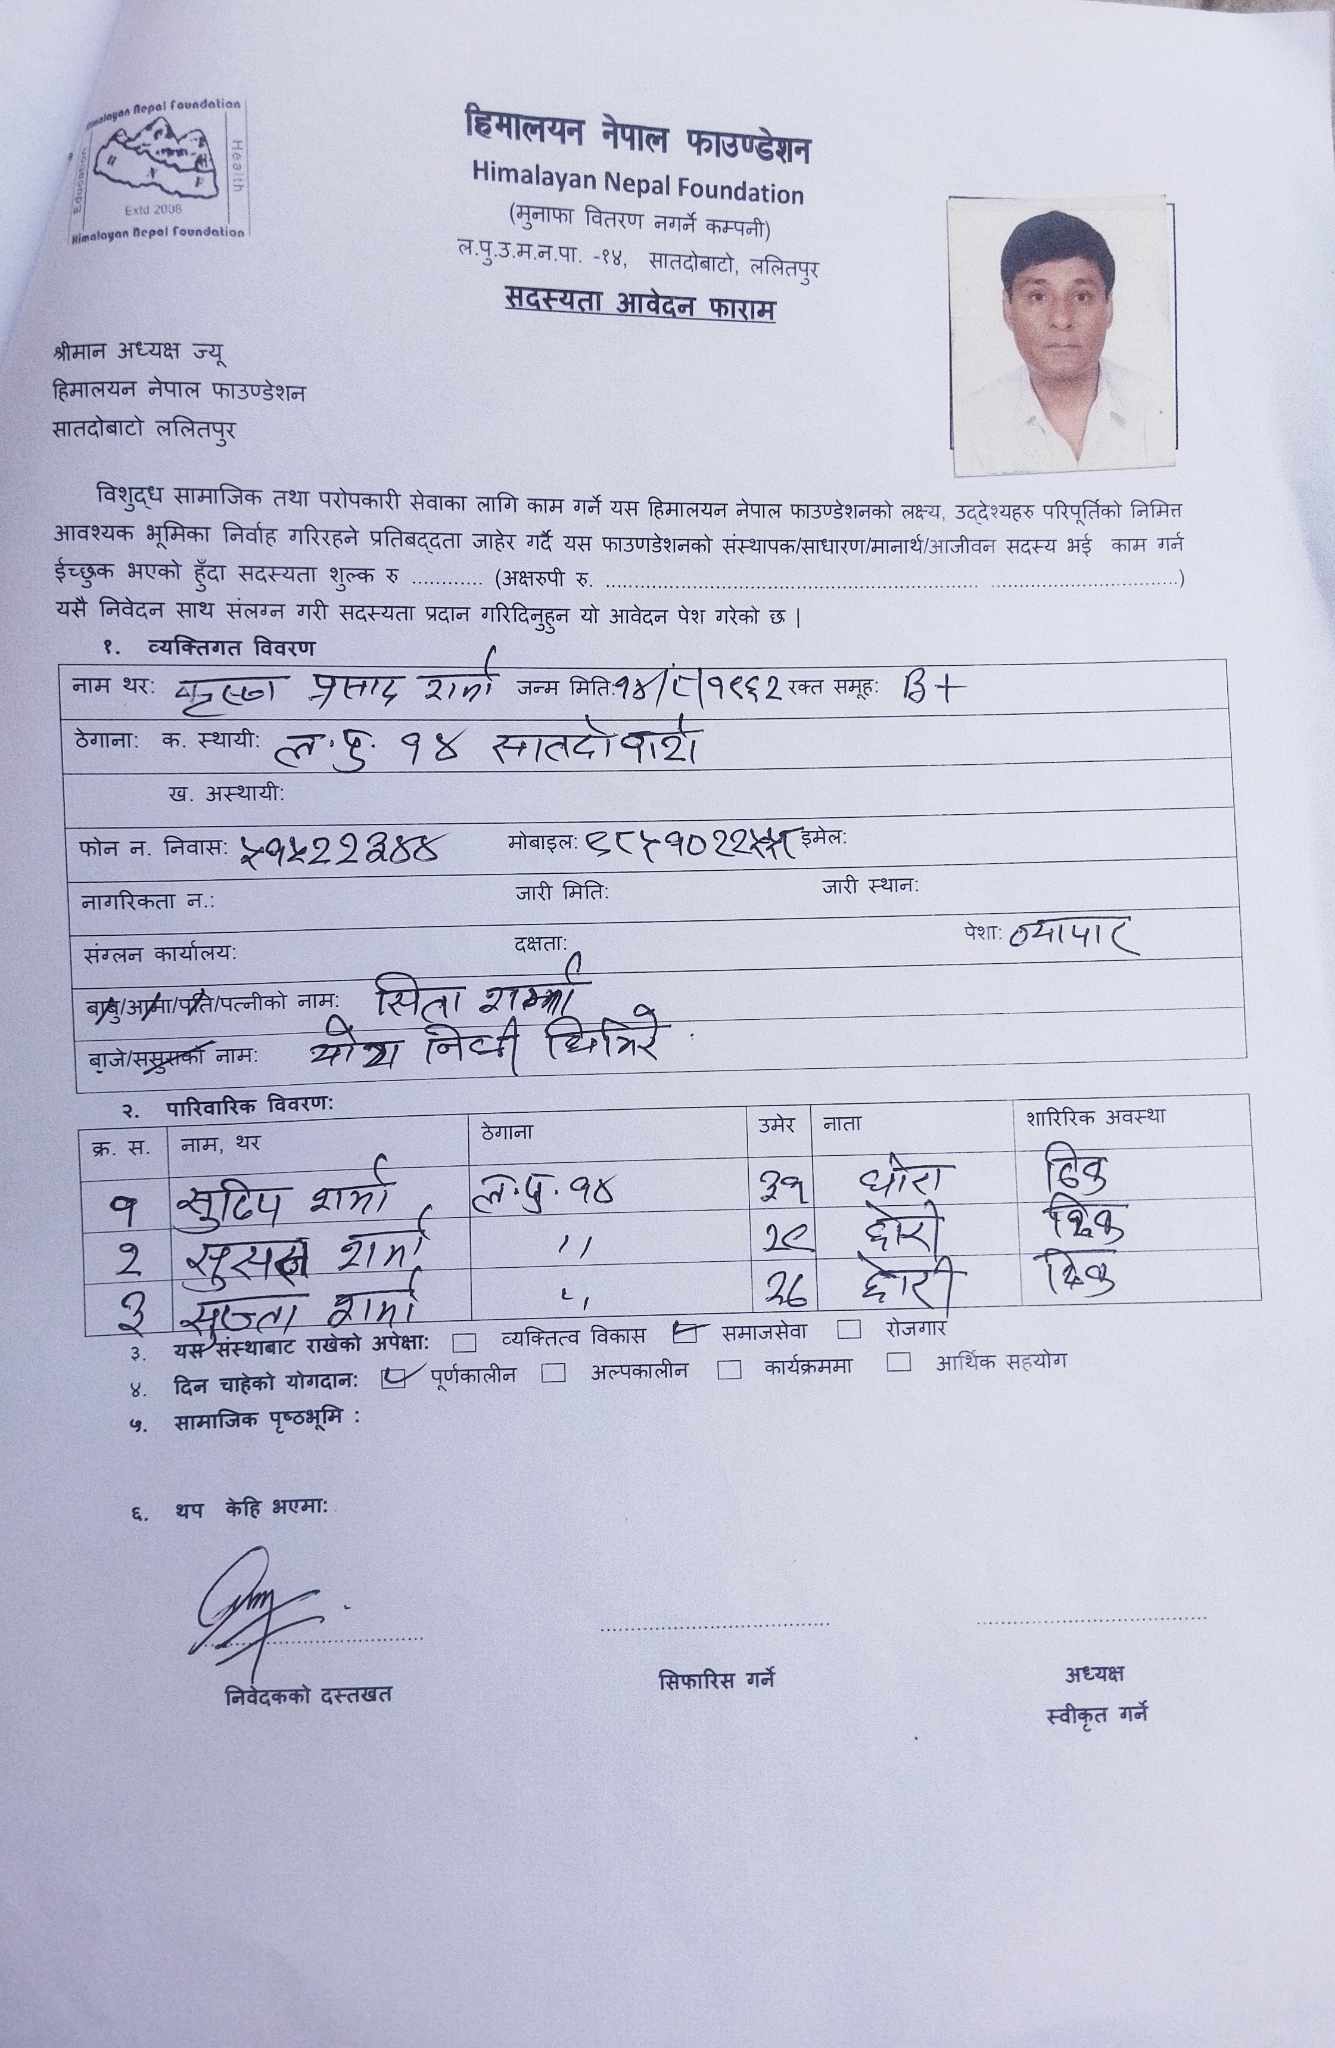 Himalayan Nepal Foundation
Education
Health
Extd 2008
Himalayan Nepal Foundation
हिमालयन नेपाल फाउण्डेशन
Himalayan Nepal Foundation
(मुनाफा वितरण नगर्ने कम्पनी)
ल.पु.उ.म.न.पा. -१४, सातदोबाटो, ललितपुर
सदस्यता आवेदन फाराम
श्रीमान अध्यक्ष ज्यू
हिमालयन नेपाल फाउण्डेशन
सातदोबाटो ललितपुर
विशुद्ध सामाजिक तथा परोपकारी सेवाका लागि काम गर्ने यस हिमालयन नेपाल फाउण्डेशनको लक्ष्य, उद्देश्यहरु परिपूर्तिको निमित्त
आवश्यक भूमिका निर्वाह गरिरहने प्रतिबद्दता जाहेर गर्दै यस फाउणडेशनको संस्थापक/साधारण/मानार्थ/आजीवन सदस्य भई काम गर्न
ईच्छुक भएको हुँदा सदस्यता शुल्क रु ............ (अक्षरुपी रु. ................................................................................................)
यसै निवेदन साथ संलग्न गरी सदस्यता प्रदान गरिदिनुहुन यो आवेदन पेश गरेको छ |
१. व्यक्तिगत विवरण
नाम थर: कृष्ण प्रसाद शर्मा जन्म मिति: १४/८/१९६२ रक्त समूह: B+
ठेगाना: क. स्थायी: ल.पु. १४ सातदोबाटो
ख. अस्थायी:
फोन न. निवास: ५१५२२३४४ मोबाइल: इमेल:
नागरिकता न.: जारी मिति: जारी स्थान:
संग्लन कार्यालय: दक्षता: पेशा: व्यापार
बाबु/आमा/पति/पत्नीको नाम: सिता शर्मा
बाजे/ससुराको नाम: निधी घिमिरे
२. पारिवारिक विवरण:
क्र. स. नाम, थर ठेगाना उमेर नाता शारिरिक अवस्था
१ सुदिप शर्मा ल.पु. १४ ३१ छोरा ठिक
२ शर्मा " २९ छोरी ठिक
३ शर्मा " छोरी ठिक
३. यस संस्थाबाट राखेको अपेक्षा: व्यक्तित्व विकास समाजसेवा रोजगार
४. दिन चाहेको योगदान: पूर्णकालीन अल्पकालीन कार्यक्रममा आर्थिक सहयोग
५. सामाजिक पृष्ठभूमि :
६. थप केहि भएमा:
निवेदकको दस्तखत
सिफारिस गर्ने
अध्यक्ष
स्वीकृत गर्ने